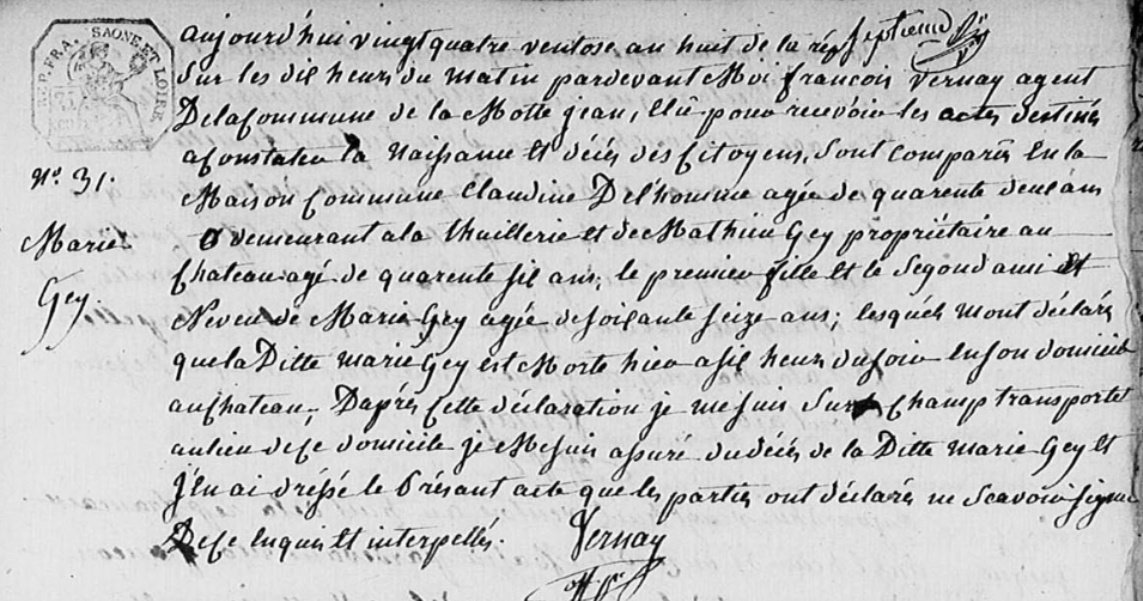 REP. FRA. SAONE ET LOIRE
aujourd'hui vingt quatre ventose an huit de la rep
Sur les dix heures du matin pardevant Moi françois Vernay agent
De la Commune de la Motte jean, Elû pour recevoir les actes destinés
a Constater la Naissance et décés des Citoyens, sont comparés En la
Maison Commune Claudine Delhomme agée de quarente deux ans
demeurant a la thuillerie et de Mathieu Gey propriétaire au
Chateau agé de quarente six ans, le premier fille et le Segond ami et
Neveu de Marie Gey agée de soixante seize ans; lesquels mont déclarés
que la Ditte Marie Gey est Morte hier a six heures du soir En son domicile
au Chateau. D'aprés Cette déclaration je me suis Sur Champ transporté
au lieu de Ce domicile je Me suis assuré du décés de la Ditte Marie Gey et
J'en ai dréssé le Présant acte que les parties ont déclarés ne Scavoir signer
De Ce Enquis Et interpellés. Vernay
N° 31.
Marie
Gey.